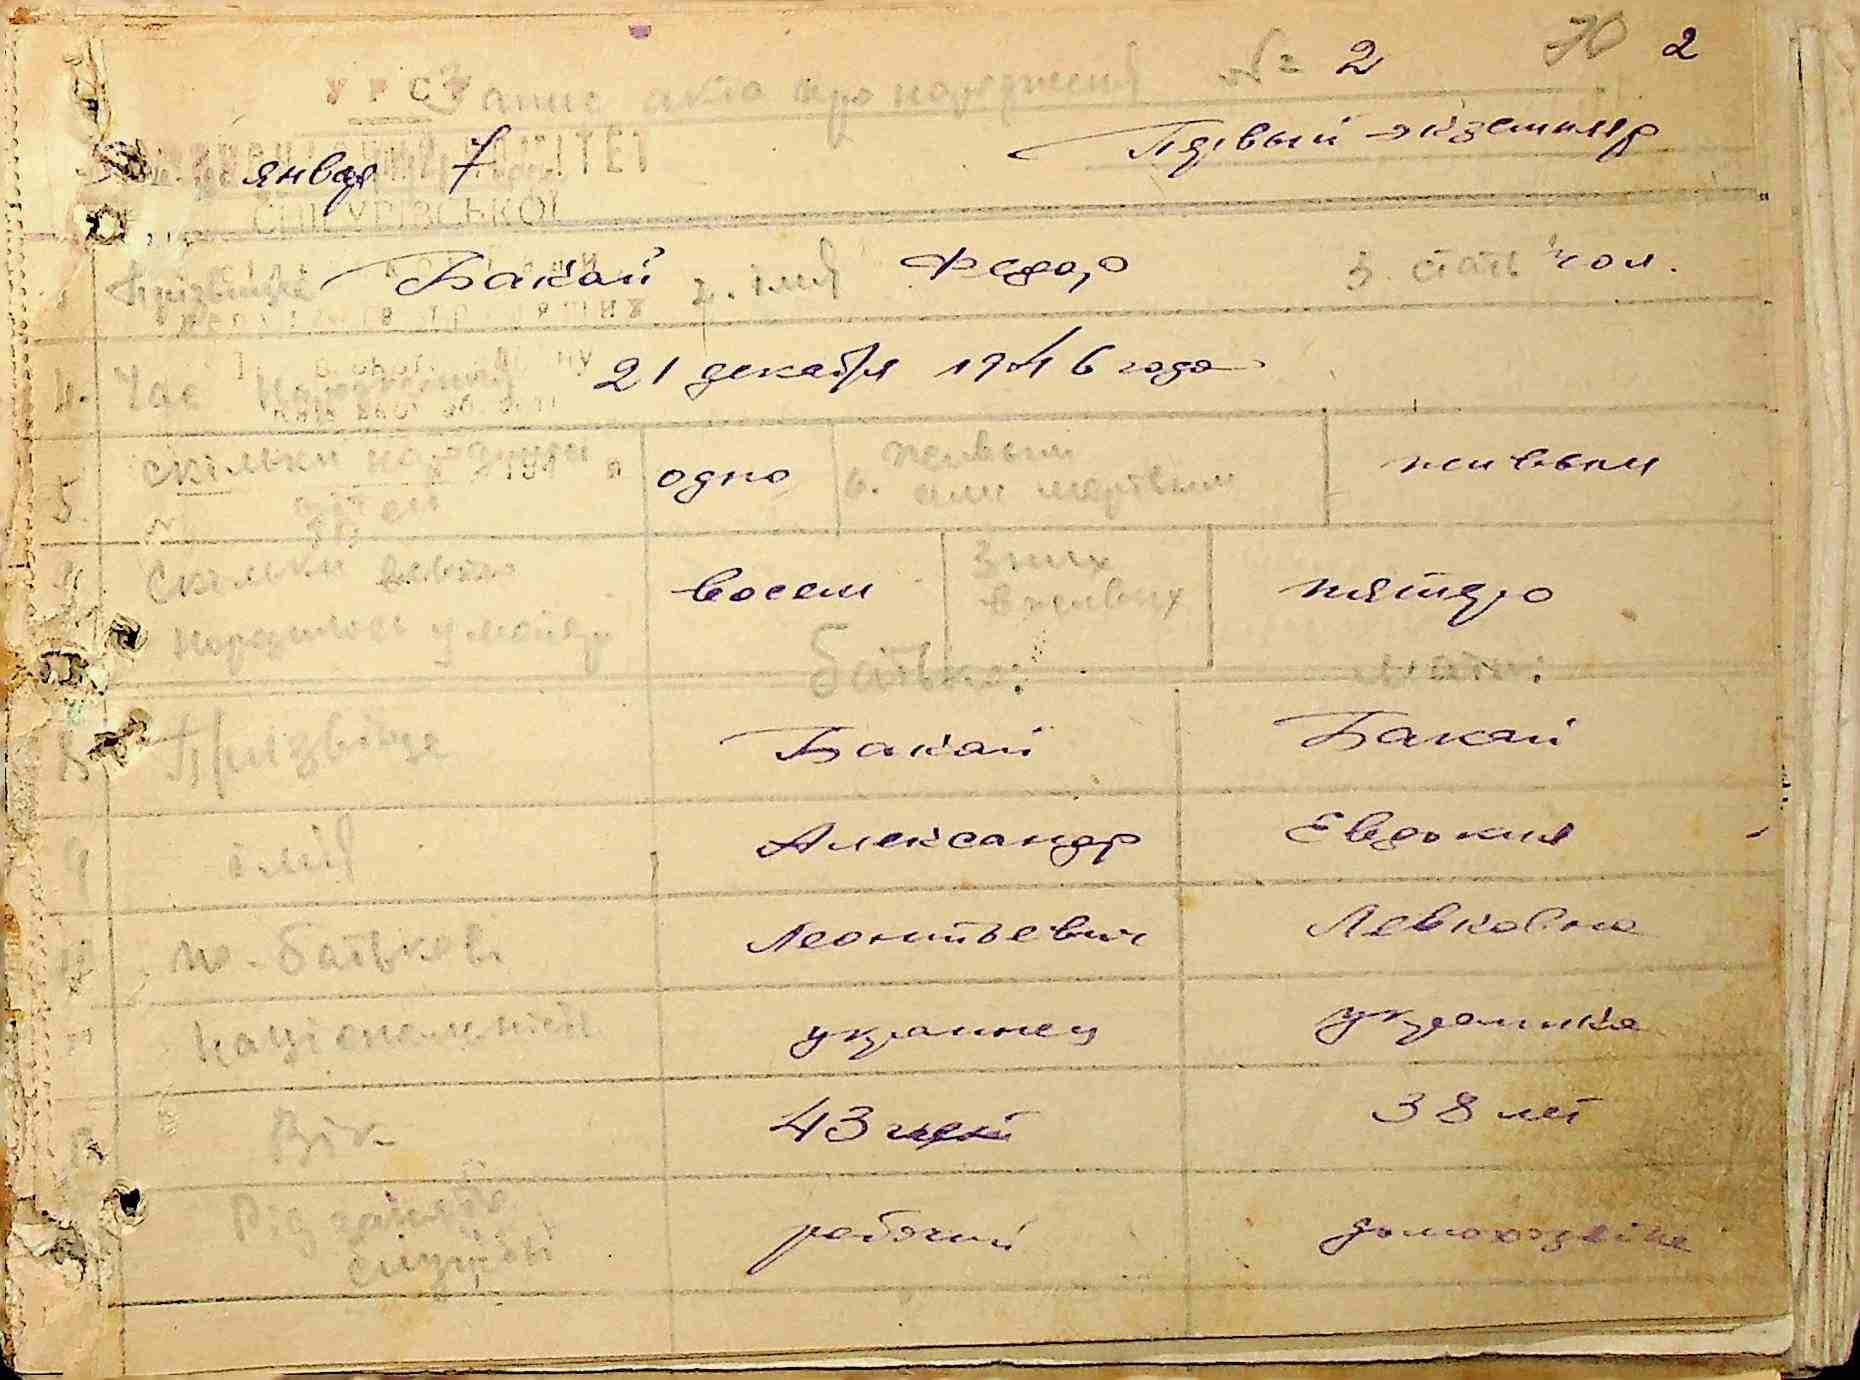 70 2
Запис акта про народження № 2
УРСР
января 7 Первый экземпляр
СНІГУРІВСЬКОЇ
1 Прізвище Бакай 2. імя Федор 3. стать чол.
4. Час народження 21 декабря 1946 года
5. скільки народжено дітей одно 6. живым или мертвым живым
Скільки всього народилось у матері восем З них в живых пятеро
батько: мати:
8 Прізвіще Бакай Бакай
9 імя Александр Евдокия
10 по-батькові Леонтьевич Левковна
Національність украинец украинка
Вік 43 38 лет
Рід занять служби рабочий домохозяйка